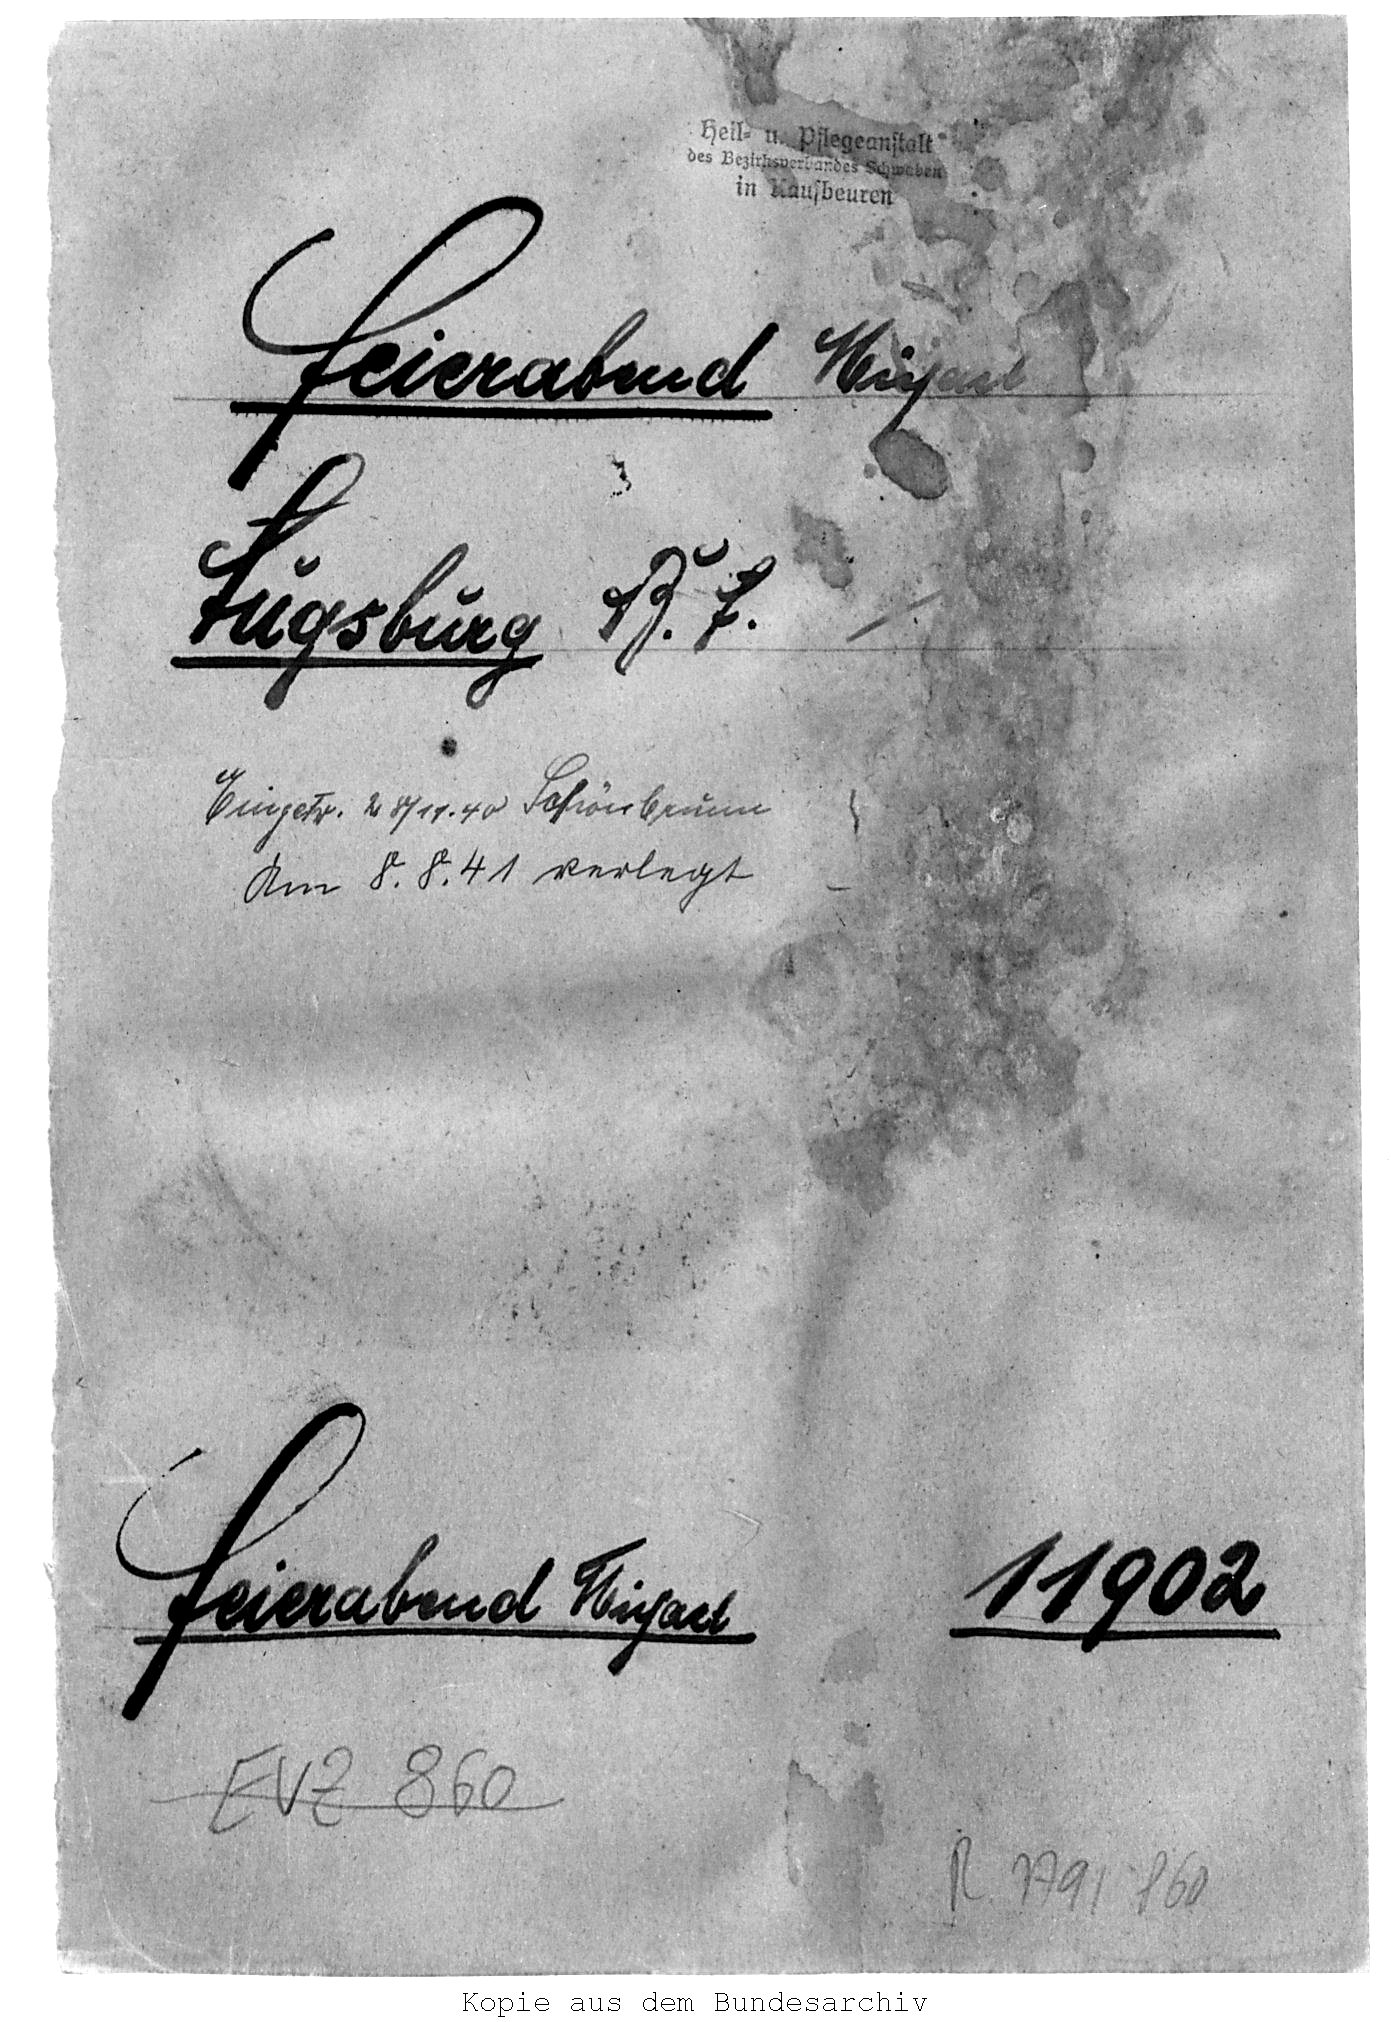 Heil- u. Pflegeanstalt
des Bezirksverbandes Schwaben
in Kaufbeuren
Feierabend
Augsburg B. Z.
Eingetr. 28/11.40 Schönbrunn
Am 8.8.41 verlegt
Feierabend 11902
EVZ 860
R 179/ 860
Kopie aus dem Bundesarchiv